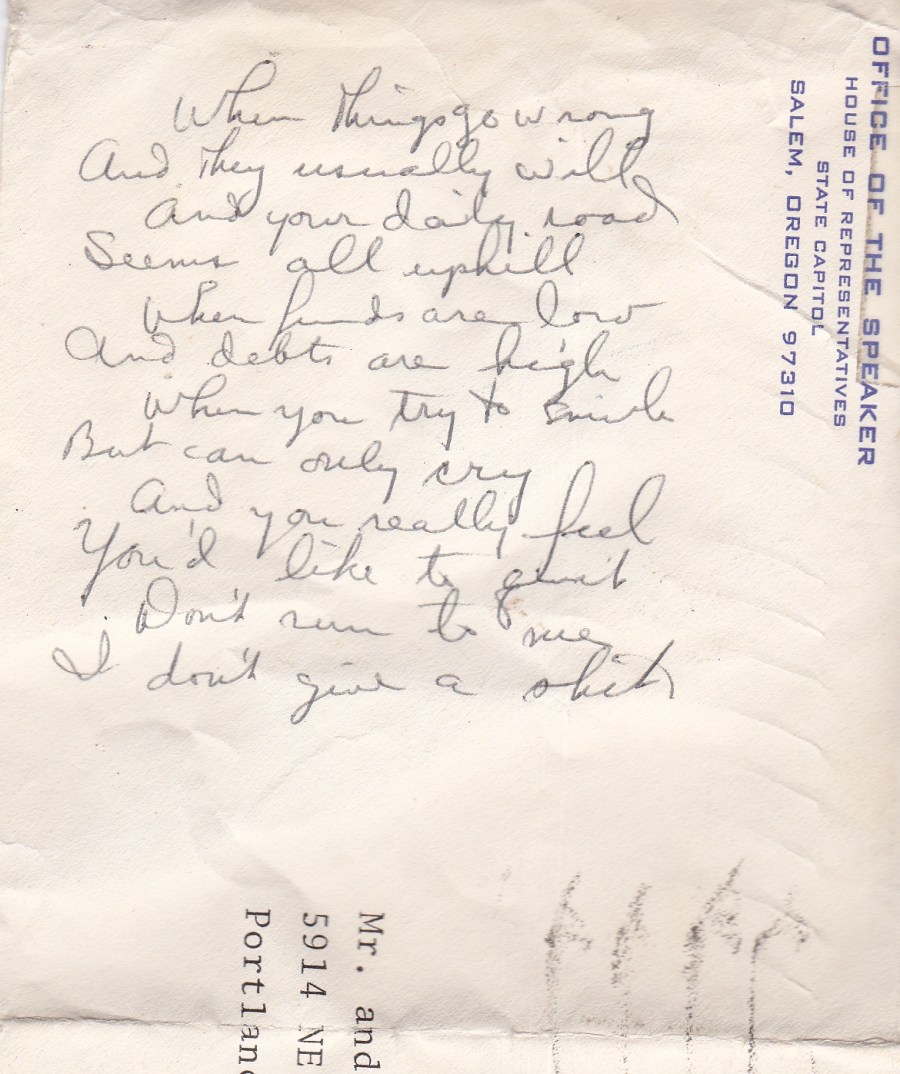 When things go wrong
And they usually will
And your daily road
Seems all uphill
When funds are low
And debts are high
When you try to smile
But can only cry
And you really feel
You'd like to quit
Don't run to me
I don't give a shit
OFFICE OF THE SPEAKER
HOUSE OF REPRESENTATIVES
STATE CAPITOL
SALEM, OREGON 97310
Mr. and
5914 NE
Portlan